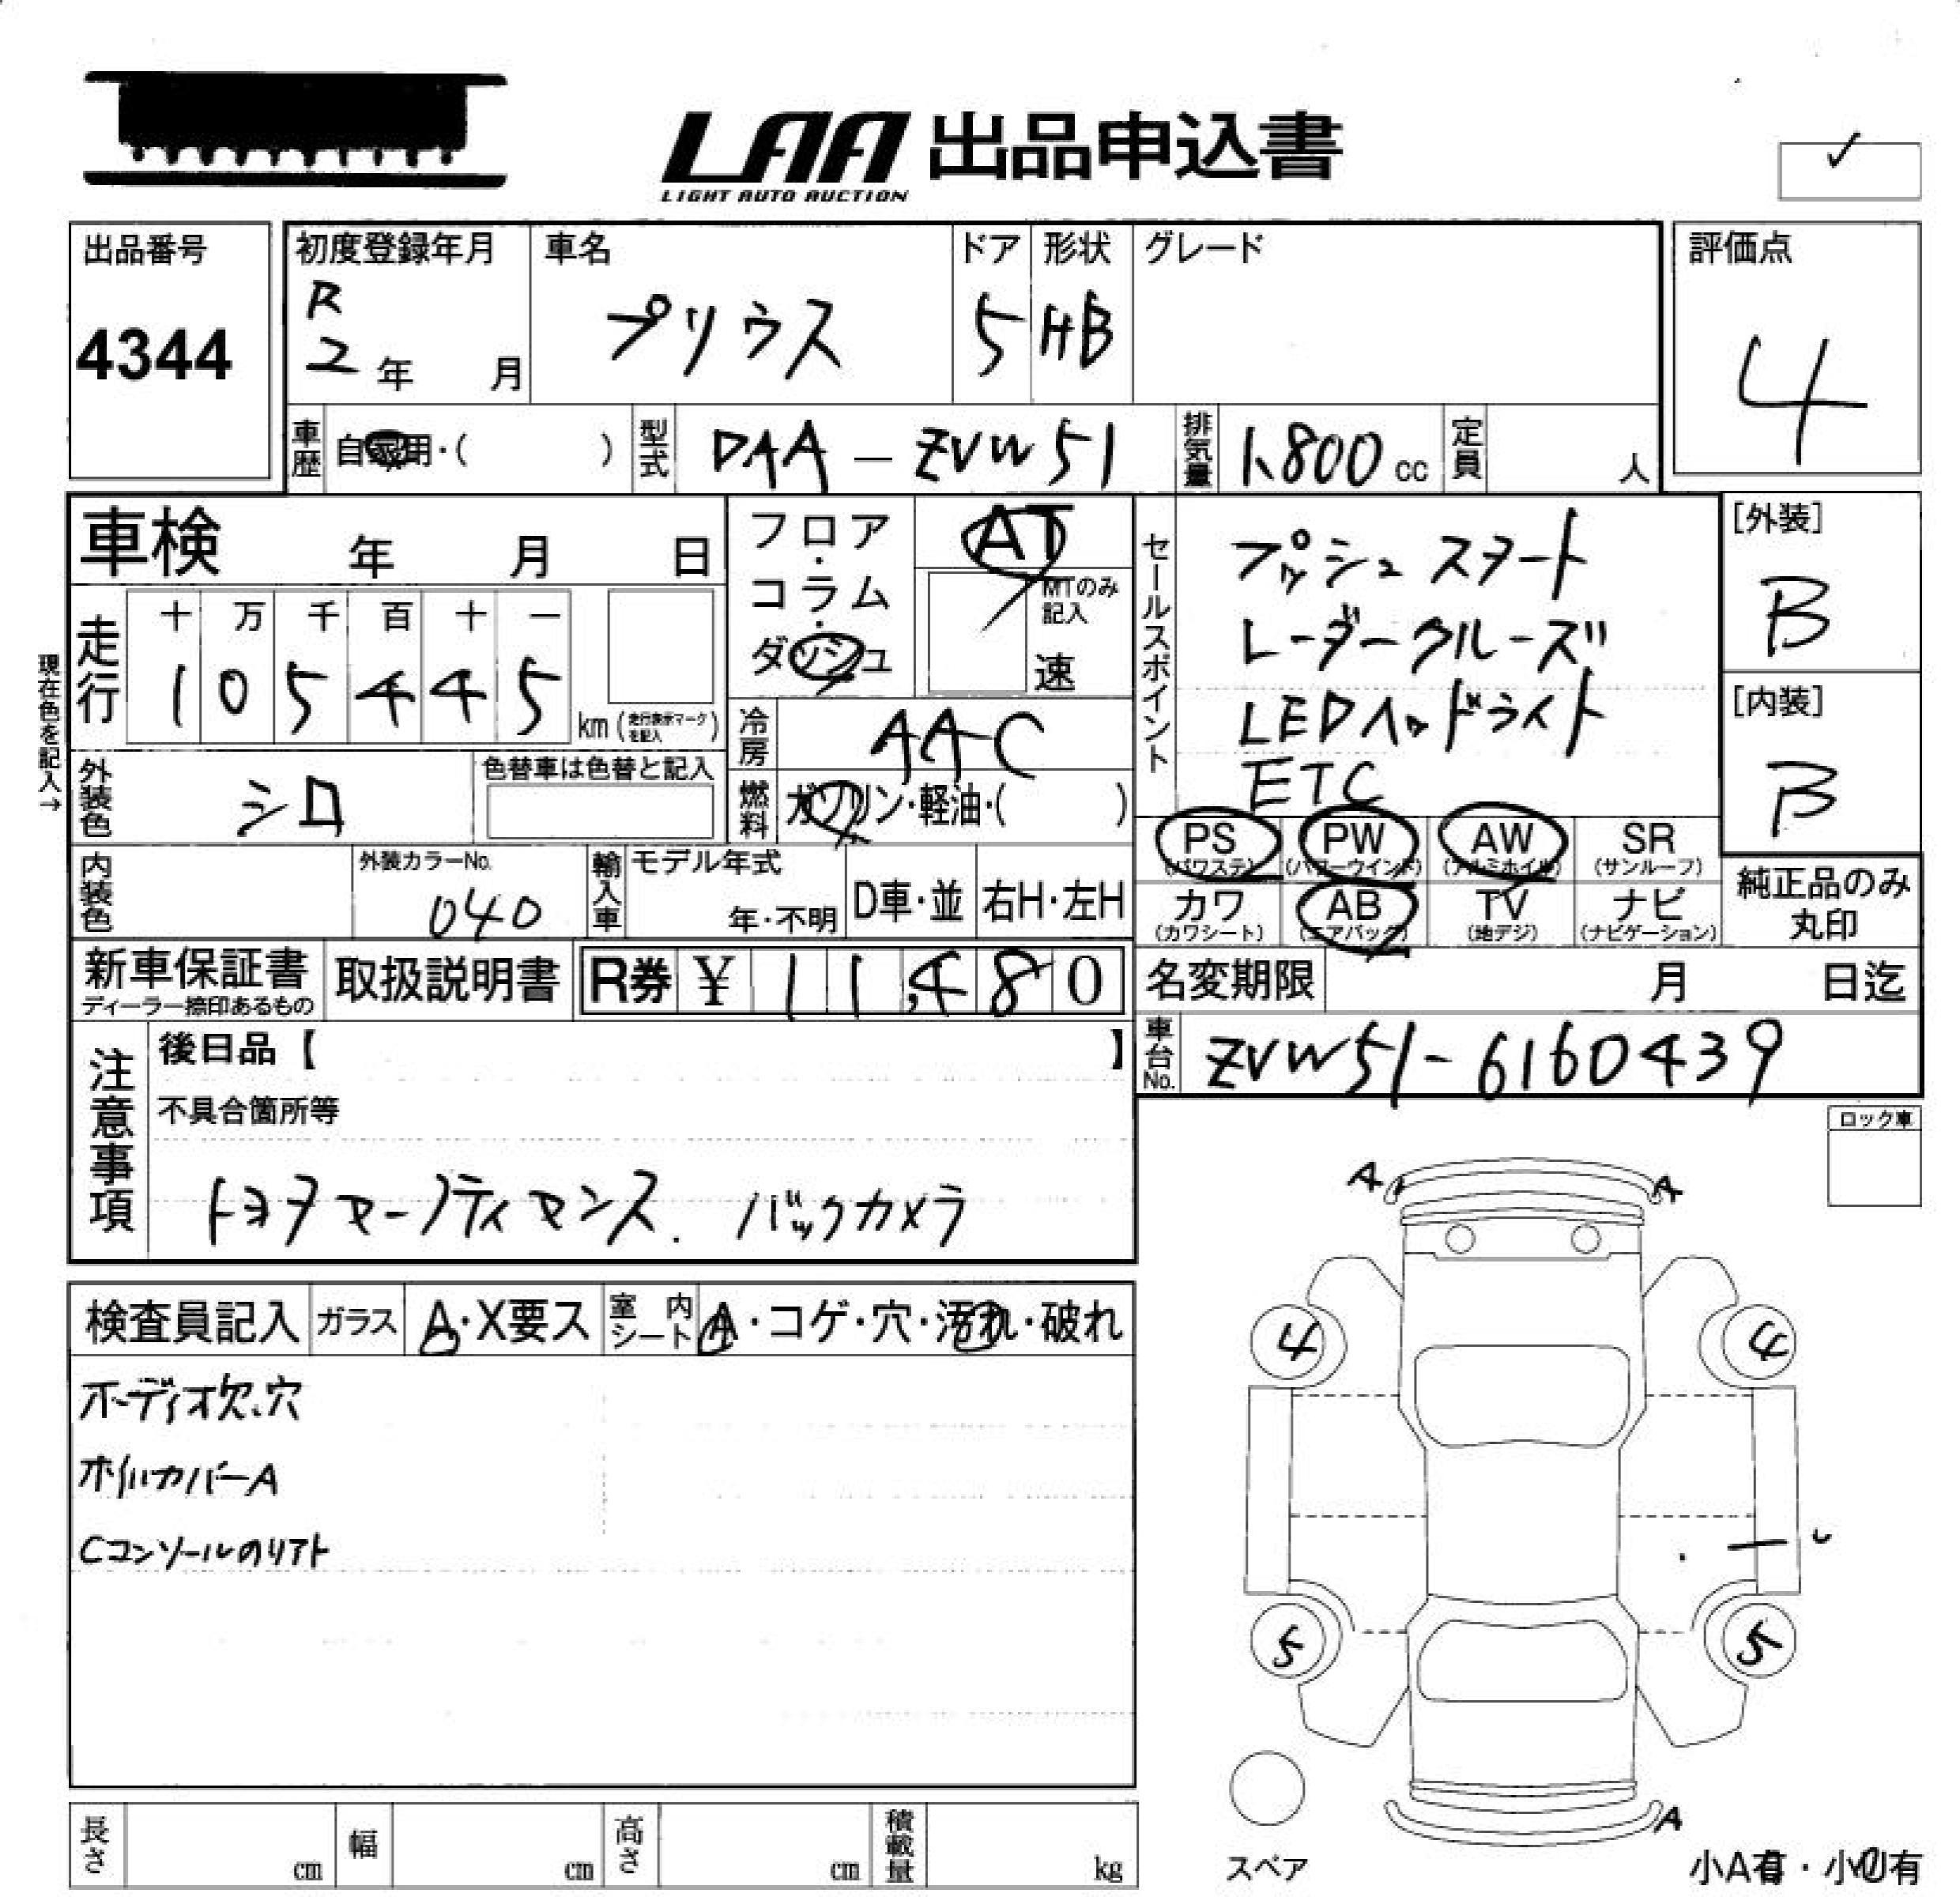 LAA 出品申込書
LIGHT AUTO AUCTION
✓
出品番号
4344
初度登録年月
R
2年 月
車名
プリウス
ドア
5
形状
HB
グレード
評価点
4
車歴
自家用・( )
型式
DAA-ZVW51
排気量
1,800cc
定員
人
車検 年 月 日
フロア・コラム・ダッシュ
AT
MTのみ記入
速
セールスポイント
プッシュスタート
レーダークルーズ
LEDヘッドライト
ETC
[外装]
B
[内装]
B
現在色を記入→
走行
十 万 千 百 十 一
1 0 5 4 4 5
km(走行表示マークを記入)
冷房
AAC
外装色
シロ
色替車は色替と記入
燃料
ガソリン・軽油・( )
PS
(パワステ)
PW
(パワーウインド)
AW
(アルミホイル)
SR
(サンルーフ)
カワ
(カワシート)
AB
(エアバック)
TV
(地デジ)
ナビ
(ナビゲーション)
純正品のみ
丸印
内装色
外装カラーNo.
040
輸入車
モデル年式
年・不明
D車・並
右H・左H
新車保証書
ディーラー捺印あるもの
取扱説明書
R券 ¥ 11,480
名変期限 月 日迄
車台No.
ZVW51-6160439
注意事項
後日品【 】
不具合箇所等
バックカメラ
ロック車
検査員記入
ガラス
A・X要ス
室内シート
A・コゲ・穴・汚れ・破れ
オーディオ欠、穴
ホイルカバーA
A A
4 4
5 5
A
スペア
小A有・小U有
長さ cm
幅 cm
高さ cm
積載量 kg